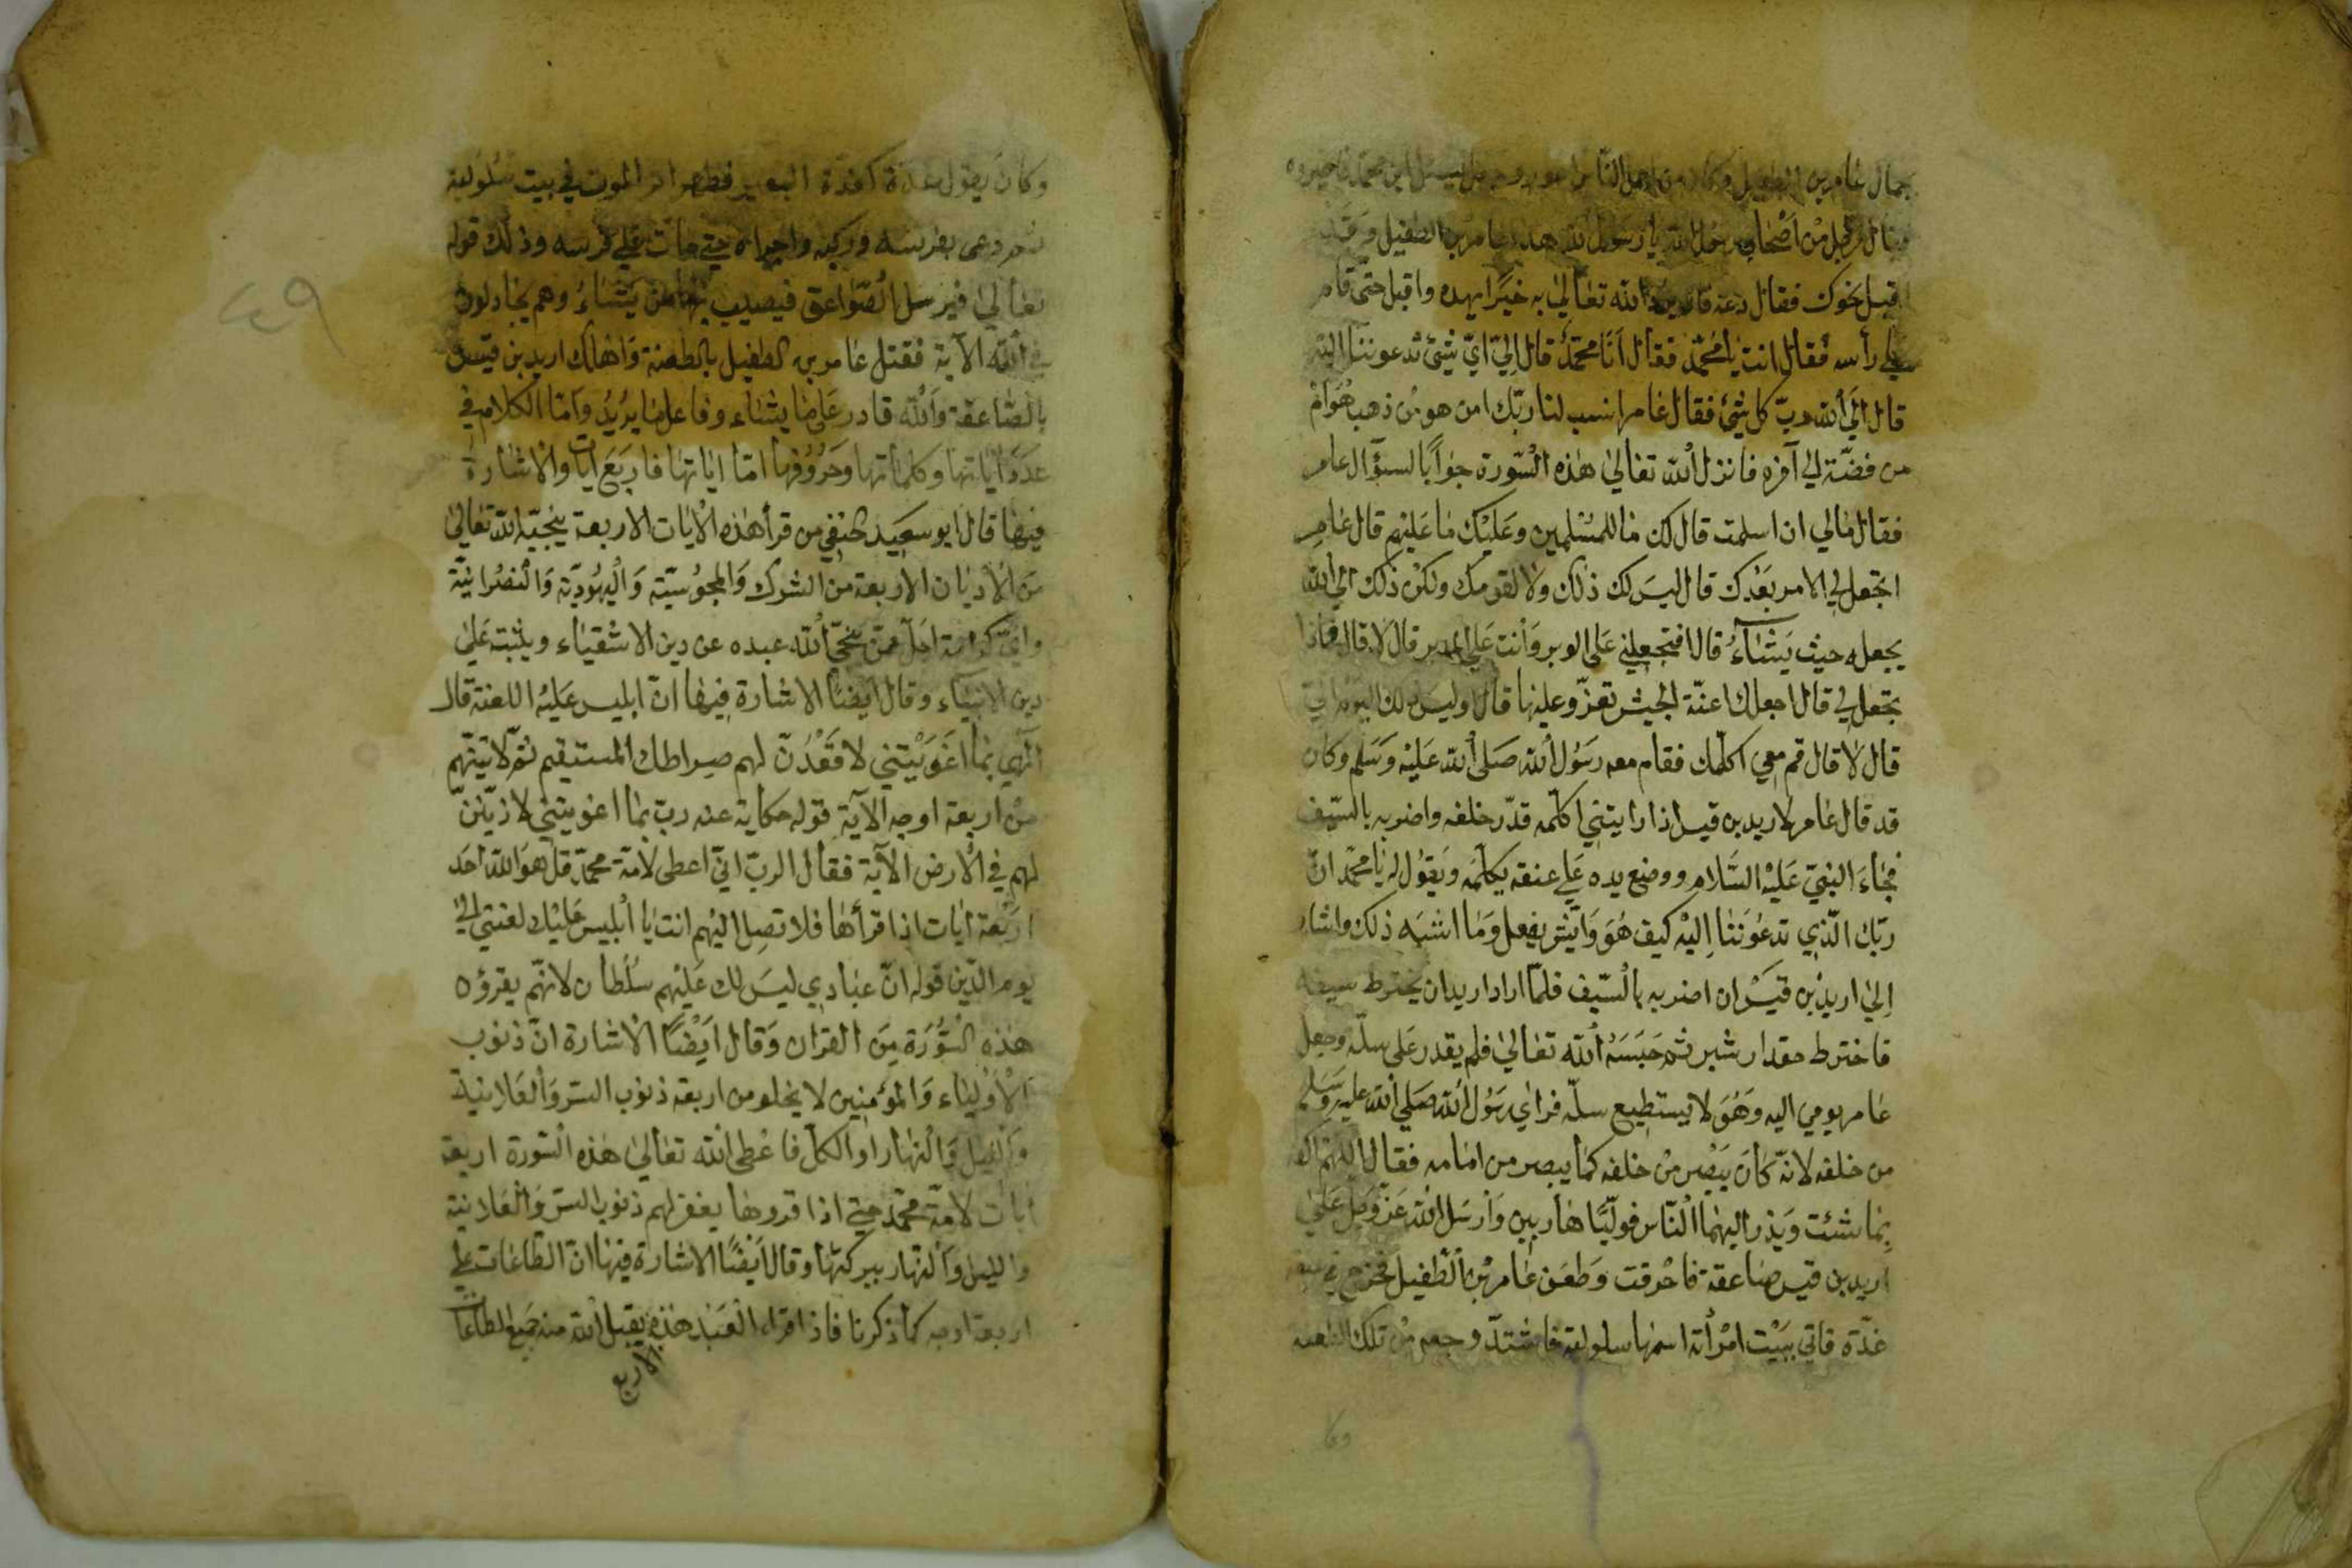 بجمال عامر بن الطفيل وكان من اجمل الناس
فقال رجل من اصحاب رسول الله يا رسول الله هذا عامر بن الطفيل وقد
اقبل نحوك فقال دعه فان يرد الله تعالى به خيرا يهده واقبل حتى قام
على رأسه فقال انت يا محمد فقال انا محمد قال الى اي شئ تدعوننا اليه
قال الى الله رب كل شئ فقال عامر انسب لنا ربك امن هو من ذهب هوام
من فضة الى آخره فانزل الله تعالى هذه السورة جوابا لسؤال عامر
فقال مالي ان اسلمت قال لك ما للمسلمين وعليك ما عليهم قال عامر
اتجعل لي الامر بعدك قال ليس لك ذلك ولا لقومك ولكن ذلك الى الله
يجعله حيث يشاء قال افتجعلني على الوبر وانت على المدر قال لا قال فماذا
تجعل لي قال اجعلك اعنة الجيش تغزو عليها قال اوليس لك اليوم الي
قال لا قال قم معي اكلمك فقام معه رسول الله صلى الله عليه وسلم وكان
قد قال عامر لاربد بن قيس اذا رايتني اكلمه قدر خلفه واضربه بالسيف
فجاء النبي عليه السلام ووضع يده على عنقه يكلمه ويقول له يا محمد ان
ربك الذي تدعوننا اليه كيف هو وايش يفعل وما اشبه ذلك واشار
الى اربد بن قيس ان اضربه بالسيف فلما اراد اربد ان يخترط سيفه
فاخترط مقدار شبر ثم حبسه الله تعالى فلم يقدر على سله وجعل
عامر يومي اليه وهو لا يستطيع سله فراى رسول الله صلى الله عليه وسلم
من خلفه لانه كان يبصر من خلفه كما يبصر من امامه فقال اللهم اكف
بما شئت ويذر اليهما الناس فوليا هاربين وارسل الله عز وجل على
اربد بن قيس صاعقة فاحرقت وطعن عامر بن الطفيل فخرج في عنقه
غدة فاتى ببيت امرأة اسمها سلولية فاشتد وجعه من تلك الطعنه
وكان يقول غدة كغدة البعير فظهر امر الموت في بيت سلولية
ثم دعى بفرسه وركبه واجراه حتى مات على فرسه وذلك قوله
تعالى فيرسل الصواعق فيصيب بها من يشاء وهم يجادلون
في الله الآية فقتل عامر بن الطفيل بالطعنة واهلك اربد بن قيس
بالصاعقة والله قادر على ما يشاء وفاعل ما يريد واما الكلام في
عدد آياتها وكلماتها وحروفها اما اياتها فاربع ايات والاشارة
فيها قال ابو سعيد الحنفي من قرأ هذه الايات الاربعة ينجيه الله تعالى
من الاديان الاربعة من الشرك والمجوسية واليهودية والنصرانية
واي كرامة اجل ممن ينجي الله عبده عن دين الاشقياء ويثبته على
دين الانبياء وقال ايضا الاشارة فيها ان ابليس عليه اللعنة قال
الهي بما اغويتني لاقعدن لهم صراطك المستقيم ثم لاتينهم
من اربعة اوجه الآية قوله حكاية عنه رب بما اغويتني لازينن
لهم في الارض الآية فقال الرب اني اعطى لامة محمد قل هو الله احد
اربعة ايات اذا قرأها فلا تصل اليهم انت يا ابليس عليك لعنتي الى
يوم الدين قوله ان عبادي ليس لك عليهم سلطان لانهم يقرؤه
هذه السورة من القران وقال ايضا الاشارة ان ذنوب
الاولياء والمؤمنين لا يخلو من اربعة ذنوب السر والعلانية
والليل والنهار او الكل فاعطى الله تعالى هذه السورة اربعة
ايات لامة محمد حتى اذا قروها يغفر لهم ذنوب السر والعلانية
والليل والنهار ببركتها وقال ايضا الاشارة فيها ان الطاعات على
اربعة اوجه كما ذكرنا فاذا قراء العبد هذه يقبل الله منه جميع الطاعات
الاربع
٤٩